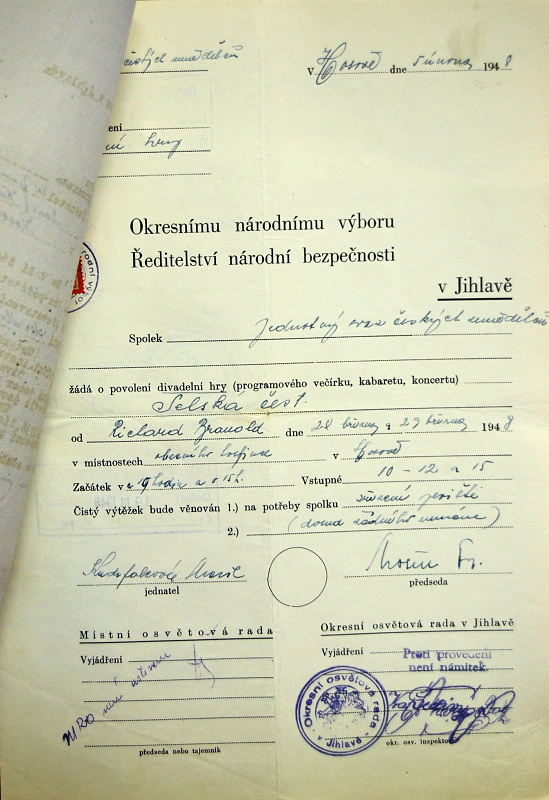 českých zemědělců
V Hosově dne 5 února 1948
ení
ní hry
Okresnímu národnímu výboru
Ředitelství národní bezpečnosti
v Jihlavě
Spolek Jednotný svaz českých zemědělců
žádá o povolení divadelní hry (programového večírku, kabaretu, koncertu)
Selská čest.
od Richard Branald dne 28 března a 29 března 1948
v místnostech obecního hostince v Hosově
Začátek v hodin a v 15 h. Vstupné 10 - 12 a 15
Čistý výtěžek bude věnován 1.) na potřeby spolku zařízení jeviště
2.) (doma žádného nemáme)
jednatel
předseda
Místní osvětová rada
Vyjádření
MRO není
předseda nebo tajemník
Okresní osvětová rada v Jihlavě
Vyjádření
Proti provedení
není námitek.
Okresní osvětová rada
v Jihlavě
okr. osv. inspektor